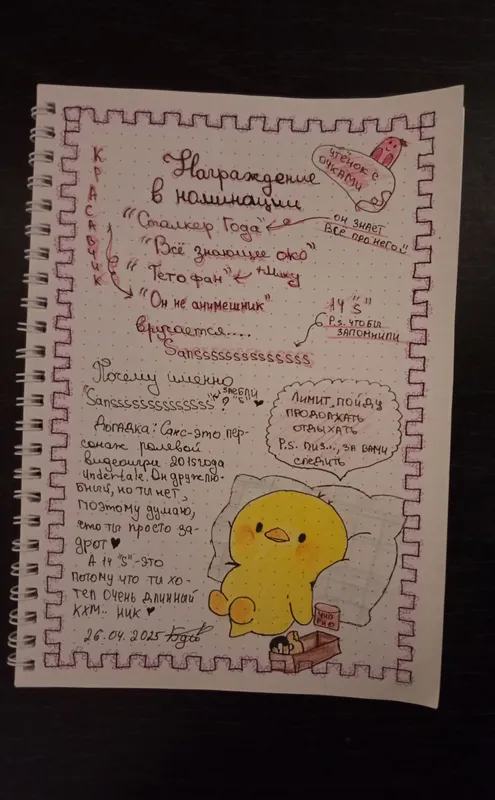 КРАСАВЧИК
ЧТЕНОК С
ОЧКАМИ
Награждение
в номинации
"Сталкер Года"
он знает
всё про него.
"Всё знающее око"
"Тетофан"
+Мику
"Он не анимешник"
14 "S"
P.s. чтобы
запомнили
вручается....
Sanssssssssssssss
Почему именно
"Sanssssssssssssss"?
заебли
"S"
Догадка: Санс-это пер-
сонаж ролевой
видеоигры 2015года
Undertale. Он дружелю-
бный, но ты нет,
поэтому думаю,
что ты просто за-
дрот
А 14 "S"-это
потому что ты хо-
тел очень длинный
кхм.. ник
26.04.2025
Лимит, пойду
продолжать
отдыхать
P.S. пиз..., за вами
следить